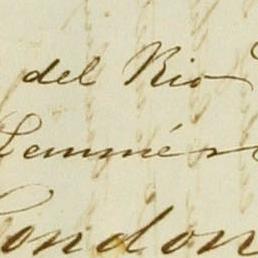 del Rio
Lemmér
London